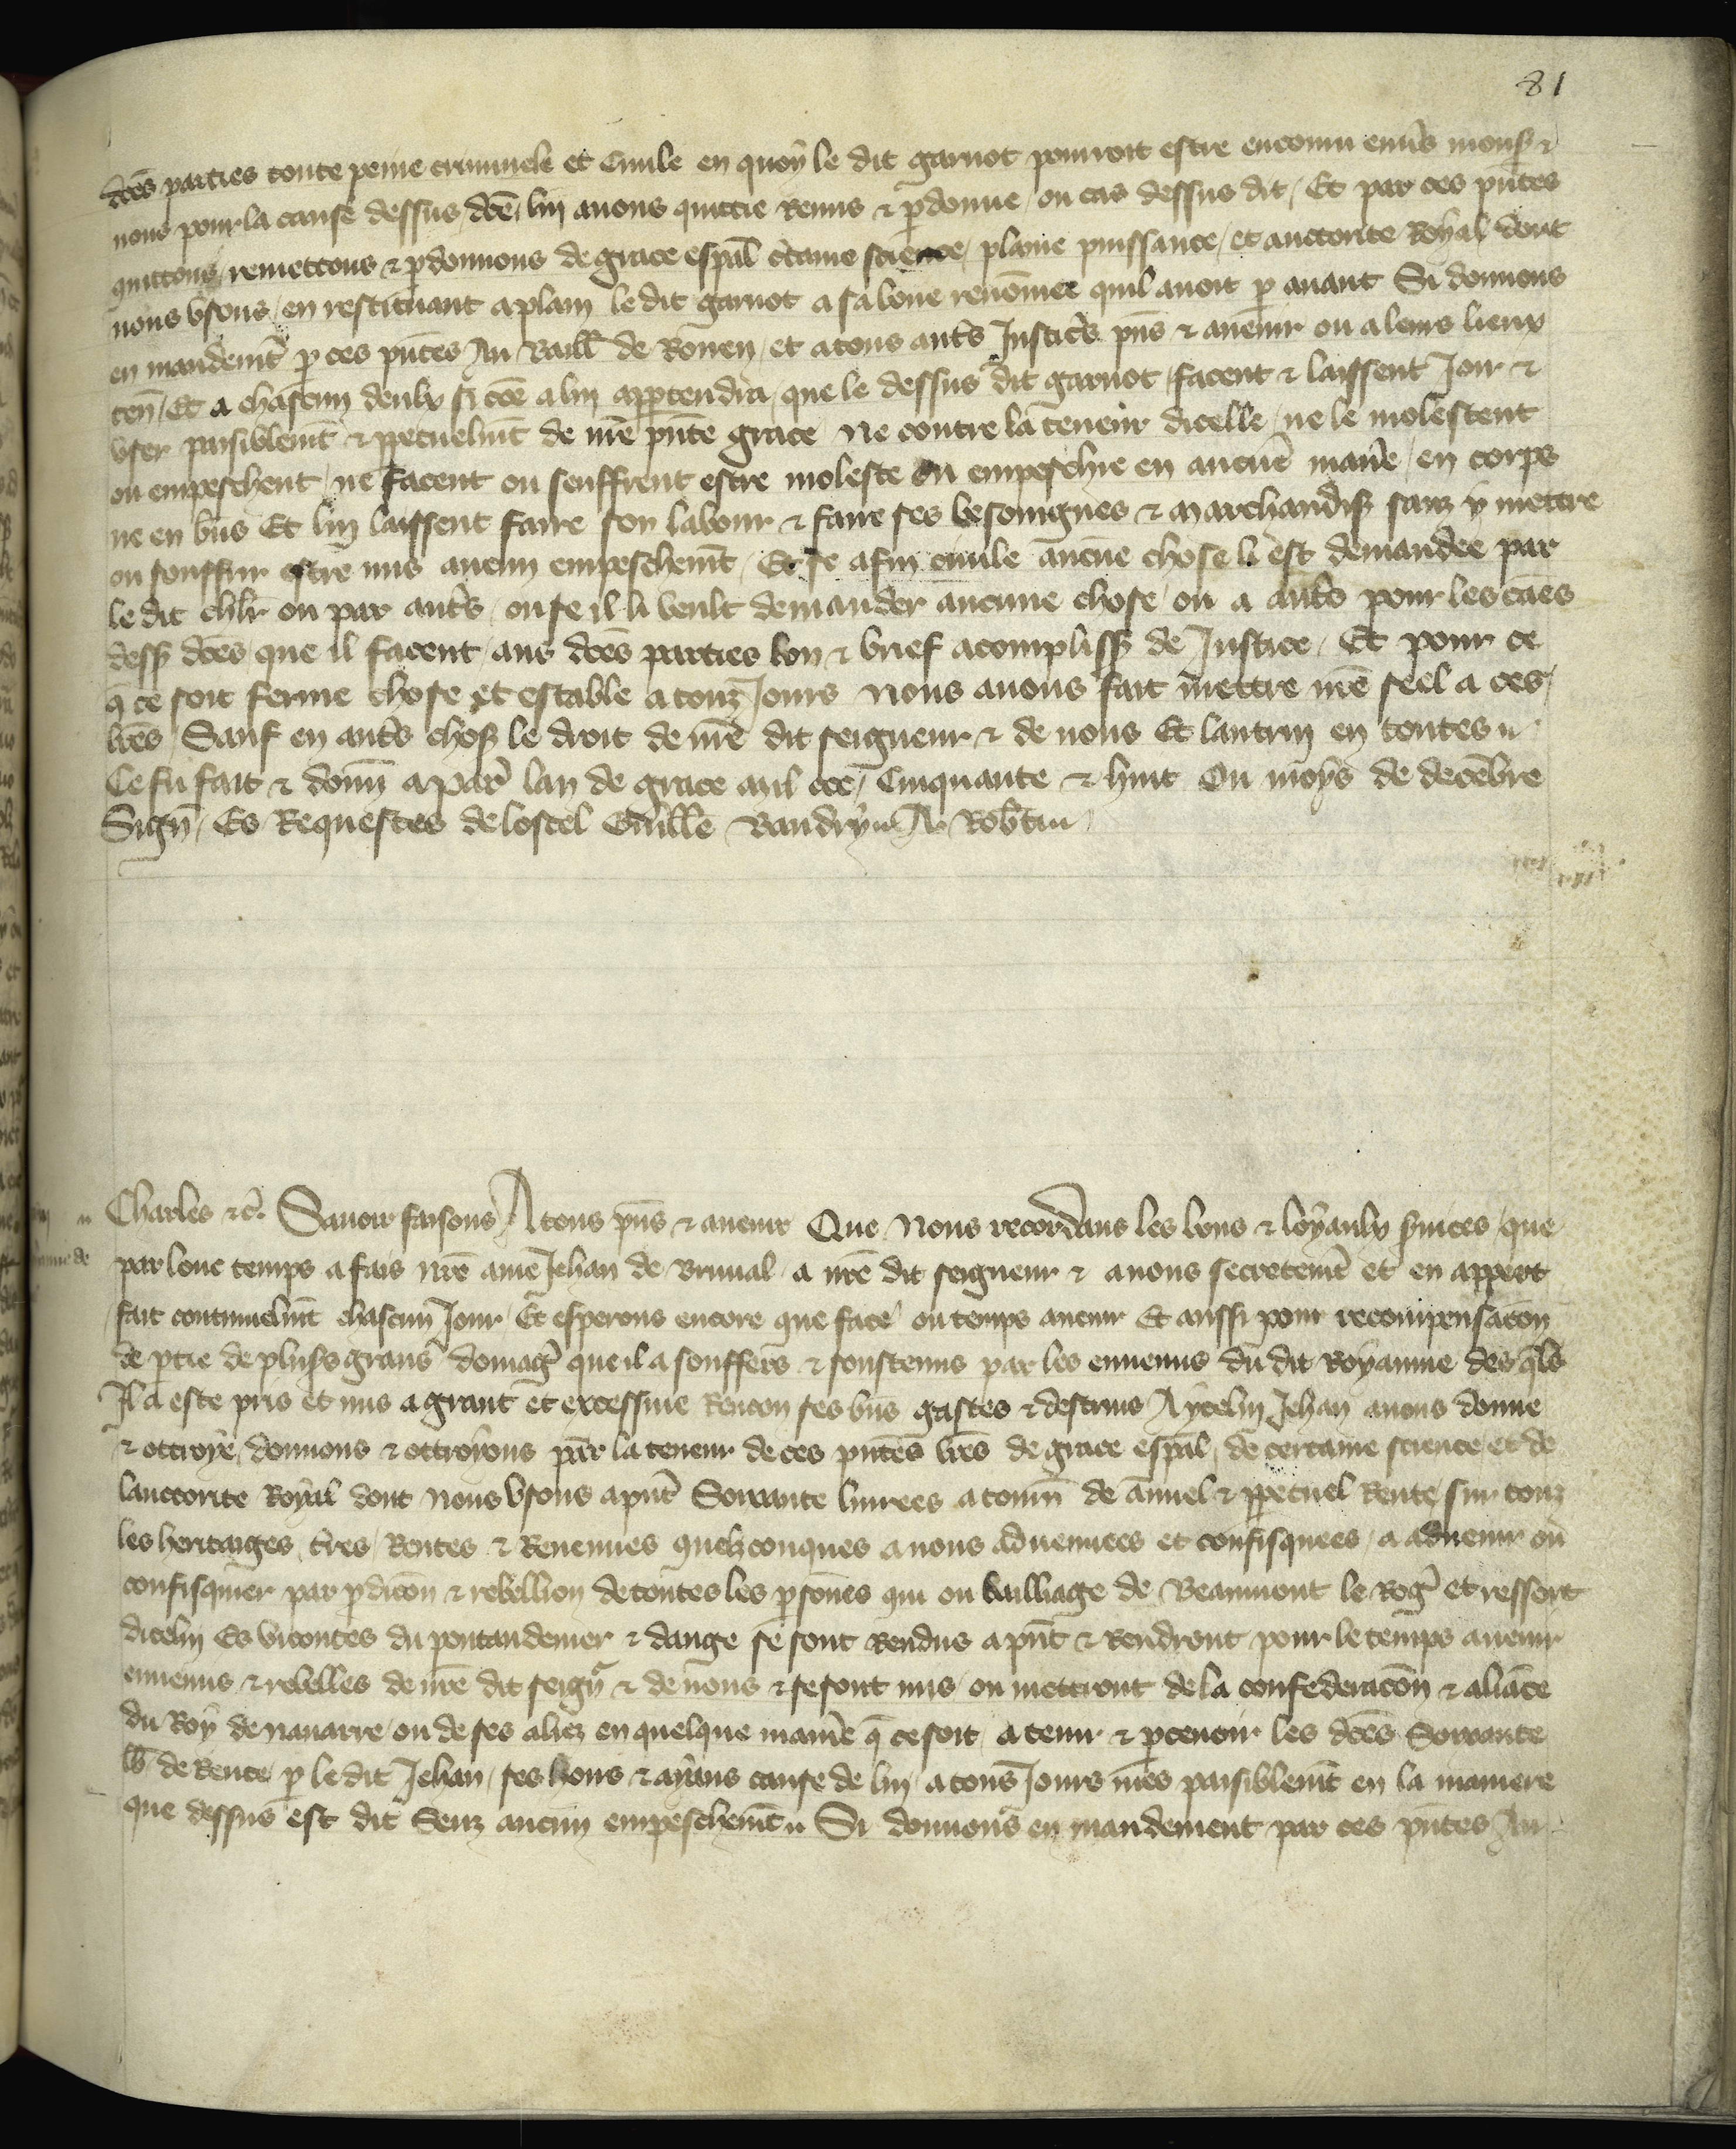 81
dc̄es parties toute peine criminele et Ciuile en quoy le dit garnot pourroit estre encouru enũs monsʳ &
nous pour la cause dessus dc̄e lui auons quittie Remis & ꝑdonne ou cas dessus dit / Et par ces pn̄tes
quittons / remettons & ꝑdonnons de grace esp̄al c̄taine science / plaine puissance / et auctorite Royal dont
nous vsons / en restituant a plain le dit garnot a sa bone renōmee quil auoit ꝑ auant Si donnons
en mandemt̄ ꝑ ces pn̄tes Au Baill̄ de Rouen / et a tous aut̄s Justic̄s pn̄s & auenir ou a leurs lieux
ten̄ / Et a chascun deulx si cōe a lui apꝑtendra / que le dessus dit garnot facent & laissent Joir &
vser paisiblemt̄ & ꝑpetuelmt̄ de nr̄e pn̄te grace Ne contre la teneur dicelle / ne le molestent
ou empeschent / ne facent ou seuffrent estre moleste ou empeschie en aucun̄ manīe / en corps
ne en bn̄s Et lui laissent faire son labour & faire ses besoingnes & marchandis̄ sanz y mettre
ou souffrir estre mis aucun empeschemt̄ / Et se a fin ciuile aucune chose li est demandee par
le dit chlr̄ ou par aut̄s / ou se il li veult demander aucune chose / ou a aut̄s pour les cāes
dess̄ dc̄es / que il facent / aus dc̄es parties bon & brief acompliss̄ de Justice / Et pour ce
q̄ ce soit ferme chose et estable a touz Jours Nous auons fait mettre nr̄e seel a ces
lr̄es / Sauf en aut̄s chos̄ le droit de nr̄e dit seigneur & de nous Et lautrui en toutes
Ce fu fait & donn̄ a Par̄ lan de grace mil ccc / Cinquante & huit Ou moys de decēbre
Sign̄ / Es Requestes de lostel Guill̄e Baudry A. Rob̄tin
Charles &c̄. Sauoir faisons A tous pn̄s & auenir Que Nous recordans les bons & loyaulx s̄uices / que
par lonc temps a fais nr̄e ame Jehan de Brinual a nr̄e dit seigneur & a nous secretemt̄ et en appert
fait continuelmt̄ chascun Jour / Et esperons encore que face ou temps auenir Et aussi pour recompensac̄on
de ꝑtie de plus̄s grans domaḡ que il a souffers & soustenus par les ennemis du dit Royaume des qls̄
Il a este pris et mis a grant et excessiue Rencon ses bn̄s gastes & destruis A ycelui Jehan auons donne
& ottroye / donnons & ottroyons par la teneur de ces pn̄tes lr̄es de grace esp̄al / de certaine science et de
lauctorite Royal dont Nous vsons a pn̄t Soixante liurees a tourn̄ de ānuel & ꝑpetuel Rente / sur touz
les heritaiges t̄res / Rentes & Reuenues quelzconques a nous aduenuees et confisquees / a aduenir ou
confisquier par ꝑdic̄on & rebellion de toutes les ꝑsones qui ou bailliage de Beaumont le Roḡ et ressort
dicelui Es vicontes du pontaudemer & dauge se sont Rendus a pn̄t & Rendront pour le temps auenir
ennemis & rebelles de nr̄e dit seignʳ & de nous & se sont mis / ou mettront de la confederac̄on & aliāce
du Roy de nauarre / ou de ses aliez en quelque manīe q̄ ce soit / a tenir & ꝑceuoir les dc̄es Soixante
lb̄ de Rente ꝑ le dit Jehan / ses hoirs & ayans cause de lui / a tous Jours mes paisiblemt̄ en la maniere
que dessus est dit Senz aucun empeschemt̄ Si donnons en mandement par ces pn̄tes Au